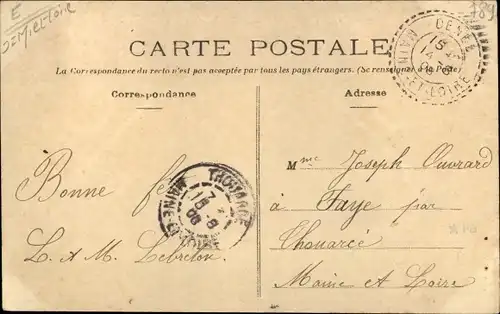 E
Mnie et Loire
789
CARTE POSTALE
La Correspondance du recto n'est pas acceptée par tous les pays étrangers. (Se renseigner à la Poste)
Correspondance
Adresse
DENÉE
15
MAINE-ET-LOIRE
Bonne fête
L. & M. Lebreton
THOUARCÉ
7
15 -8
06
MAINE-ET-LOIRE
Mme Joseph Ouvrard
à Faye par
Thouarcé
Maine et Loire